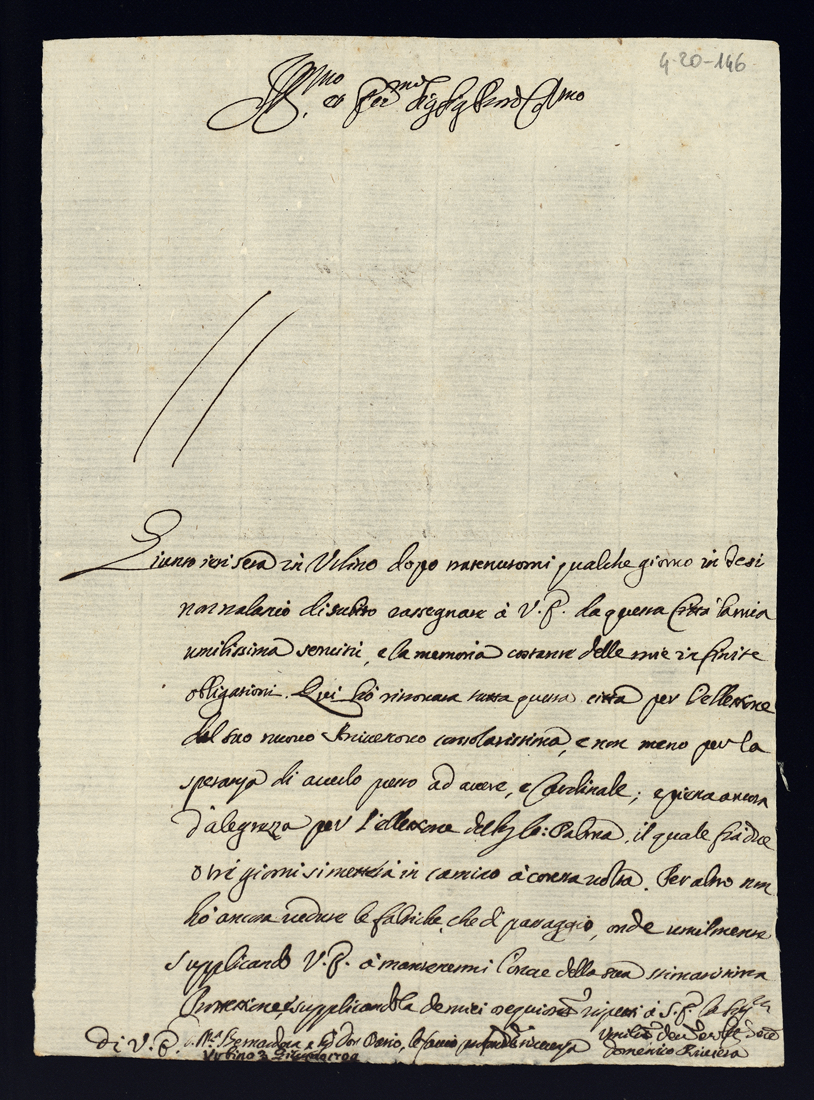 4-20-146
Ill.mo et Ecc.mo Sig. Sig. Pron Col.mo
Giunto ieri sera in Urbino dopo trattenutomi qualche giorno in Jesi
non tralascio di subito rassegnare à V. E. da questa Città la mia
umilissima servitù, e la memoria costante delle mie infinite
obligazioni. Qui hò ritrovata tutta questa città per l'ellezione
del suo nuovo Arcivescovo consolatissima, e non meno per la
speranza di averlo presto ad avere, e Cardinale; e piena ancora
d'alegrezza per l'ellezione del Palma, il quale frà due
o trè giorni si metterà in camino à cotesta volta. Per altro non
hò ancora vedute le fabriche, che di passaggio, onde umilmente
supplicando V. E. à mantenermi l'onore della sua stimatissima
Protezzione, e supplicandola de miei ossequiosi rispetti à S. E. la Sig.ra
D. Bernardina e Don Orazio, le faccio profonda riverenza
di V. E.
Urbino 2
Umiliss.mo Dev.mo
Domenico Riviera